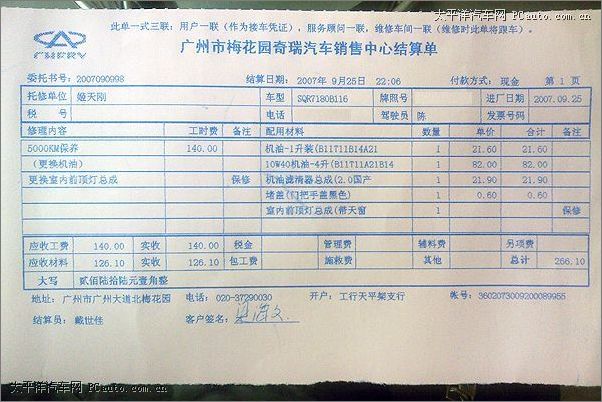 太平洋汽车网 PCauto.com.cn
此单一式三联：用户一联（作为接车凭证），服务顾问一联，维修车间一联（维修时此单将跟车）。
CHERY
广州市梅花园奇瑞汽车销售中心结算单
委托书号：2007090998 结算日期：2007年 9月25日 22:06 付款方式：现金 第 1 页
托修单位 姬天刚 车型 SQR7180B116 牌照号 进厂日期 2007.09.25
税 号 电话 驾驶员 陈 发票号码
修理内容 工时费 备注 配用材料 数量 单价 合计 备注
5000KM保养 140.00 机油-1升装(B11T11B14A21 1 21.60 21.60
（更换机油） 10W40机油-4升(B11T11A21B14 1 82.00 82.00
更换室内前顶灯总成 保修 机油滤清器总成(2.0国产 1 21.90 21.90
堵盖(门把手盖黑色) 1 0.60 0.60
室内前顶灯总成(带天窗 1 保修
应收工费 140.00 实收 140.00 税金 管理费 辅料费 另项费
应收材料 126.10 实收 126.10 包工费 施救费 其他 总计 266.10
大写 贰佰陆拾陆元壹角整
地址：广州市广州大道北梅花园 电话：020-37290030 开户：工行天平架支行 帐号：3602073009200089955
结算员：戴世佳 客户签名：
太平洋汽车网 PCauto.com.cn